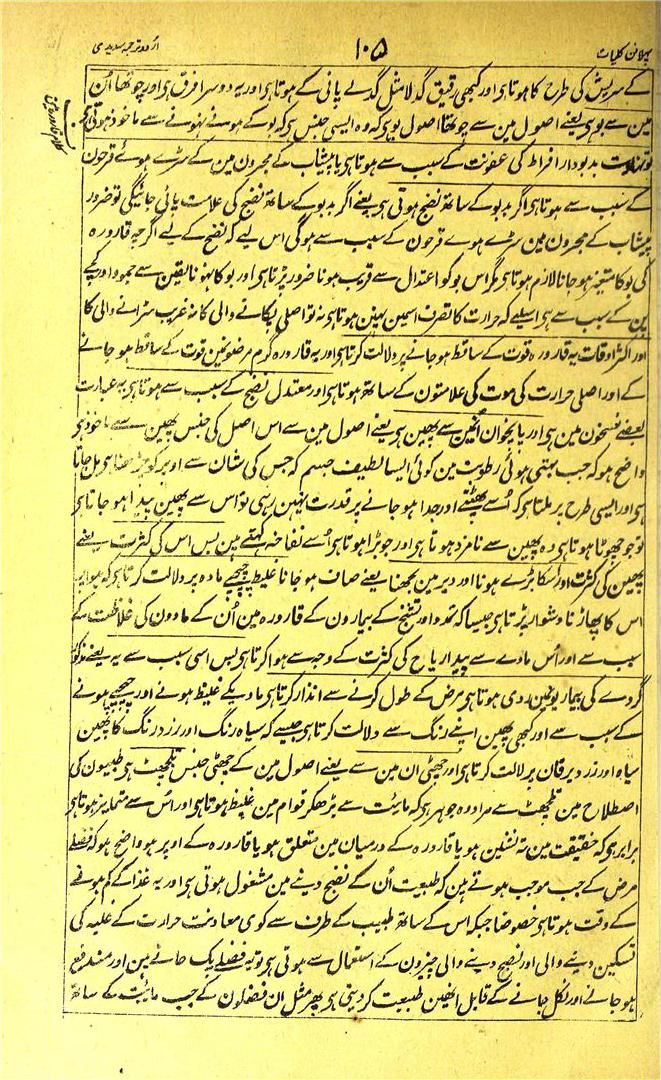 پہلا فن کلیات
۱۰۵
اردو ترجمہ سدیدی
کے سریش کی طرح کا ہوتا ہی اور کبھی رقیق گدلا مثل گدلے پانی کے ہوتا ہی اور یہ دوسرا فرق ہی اور چوتھا اُن
مین سے بو ہی یعنے اصول مین سے چوتھا اصول بو ہی کہ وہ ایسی جنس ہی کہ بو کے ہونے نہونے سے ماخوذ ہوتی ہی
تو نہایت بدبودار افراط کی عفونت کے سبب سے ہوتا ہی یا پیشاب کے مجرون مین کے سڑے ہوئے قرحون
کے سبب سے ہوتا ہی اگر بدبو کے ساتھ نضج ہوتی ہی یعنے اگر بدبو کے ساتھ نضج کی علامت پائی جائیگی تو ضرور
پیشاب کے مجرون مین سڑے ہوے قرحون کے سبب سے ہو گی اس لیے کہ نضج کے لیے اگرچہ قارورہ
کی بو کا متغیر ہو جانا لازم ہوتا ہی مگر اس بو کو اعتدال سے قریب ہونا ضرور پڑتا ہی اور بو کا نہونا یقین سے جمود اور کچے
پن کے سبب سے ہی اسلیے کہ حرارت کا تصرف اسمین نہین ہوتا ہی نہ تو اصلی پکانے والی کا نہ غریب سڑانے والی کا
اور اکثر اوقات یہ قارورہ قوت کے ساقط ہو جانے پر دلالت کرتا ہی اور یہ قارورہ گرم مرضونمین قوت کے ساقط ہو جانے
کے اور اصلی حرارت کی موت کی علامتون کے ساتھ ہوتا ہی اور معتدل نضج کے سبب سے ہوتا ہی یہ عبارت
بعضے نسخون مین ہی اور پانچوان انمین سے پھین ہی یعنے اصول مین سے اس اصل کی جنس پھین سے ماخوذ ہی
واضح ہو کہ جب بہتی ہوئی رطوبت مین کوئی ایسا لطیف جسم کہ جس کی شان سے اوپر کو چڑھنا ہی مل جاتا
ہی اور ایسی طرح پر ملتا ہی کہ اُسے پھٹنے اور جدا ہو جانے پر قدرت نہین رہتی تو اس سے پھین پیدا ہو جاتا ہی
تو جو چھوٹا ہوتا ہی وہ پھین سے نامزد ہوتا ہی اور جو بڑا ہوتا ہی اُسے نفاخہ کہتے ہین پس اس کی کثرت یعنے
پھین کی کثرت اور اسکا بڑے ہونا اور دیر مین بجھنا یعنے صاف ہو جانا غلیظ چیچپے مادہ پر دلالت کرتا ہی کہ ہوا پر
اس کا پھاڑنا دشوار پڑتا ہی جیسا کہ تمدد اور تشنج کے بیمارون کے قارورہ مین اُن کے مادون کی غلاظت کے
سبب سے اور اُس مادے سے پیدا ریاح کی کثرت کے وجہ سے ہوا کرتا ہی پس اسی سبب سے یہ یعنے مذکور
گردے کی بیماریونمین ردی ہوتا ہی مرض کے طول کرنے سے انذار کرتا ہی مادیکے غلیظ ہونے اور چیچپے ہونے
کے سبب سے اور کبھی پھین اپنے رنگ سے دلالت کرتا ہی جیسے کہ سیاہ رنگ اور زرد رنگ کا پھین
سیاہ اور زرد یرقان پر لالت کرتا ہی اور چھٹی ان مین سے یعنے اصول مین کے چھٹی جنس تلچھٹ ہی طبیبون کی
اصطلاح مین تلچھٹ سے مراد وہ جوہر ہی کہ مائیت سے بڑھکر قوام مین غلیظ ہوتا ہی اور اس سے متمایز ہوتا ہی
برابر ہی کہ حقیقت مین تہ نشین ہو یا قارورہ کے درمیان مین متعلق ہو یا قارورہ کے اوپر ہو واضح ہو کہ فضلے
مرض کے جب موجب ہوتے ہین کہ طبیعت اُن کے نضج دینے مین مشغول ہوتی ہی اور یہ غذا کے کم ہونے
کے وقت ہوتا ہی خصوصا جبکہ اس کے ساتھ طبیب کے طرف سے کوی معاونت حرارت کے غلبہ کی
تسکین دینے والی اور نضج دینے والی چیزون کے استعمال سے ہوتی ہی تو یہ فضلے پک جاتے ہین اور مندفع
ہو جانے اور نکل جانے کے قابل انھین طبیعت کر دیتی ہی پھر مثل ان فضلون کے جب مائیت کے ساتھ